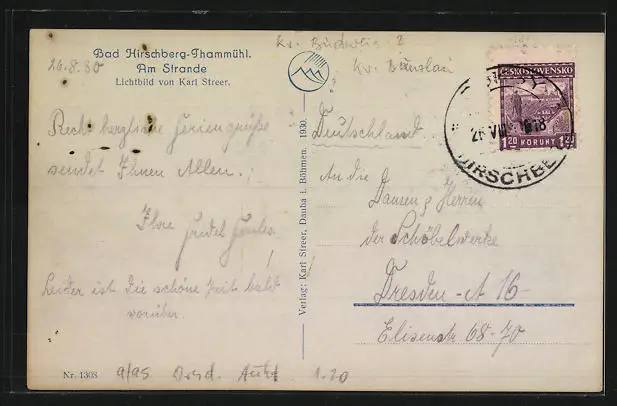 Bad Hirschberg-Thammühl.
Am Strande
Lichtbild von Karl Streer.
26.8.30
Recht herzliche Feriengrüße
sendet Ihnen Allen.
Ihre
Leider ist die schöne Zeit bald
vorüber.
Nr. 1308
Verlag: Karl Streer, Dauba i. Böhmen. 1930.
Kr. Bunzlau
ČESKOSLOVENSKO
1.20 KORUNY
HIRSCHBE
Deutschland
An die
Damen & Herren
der Schöbelwerke
Dresden-A 16
Elisenstr 68-70
1.20